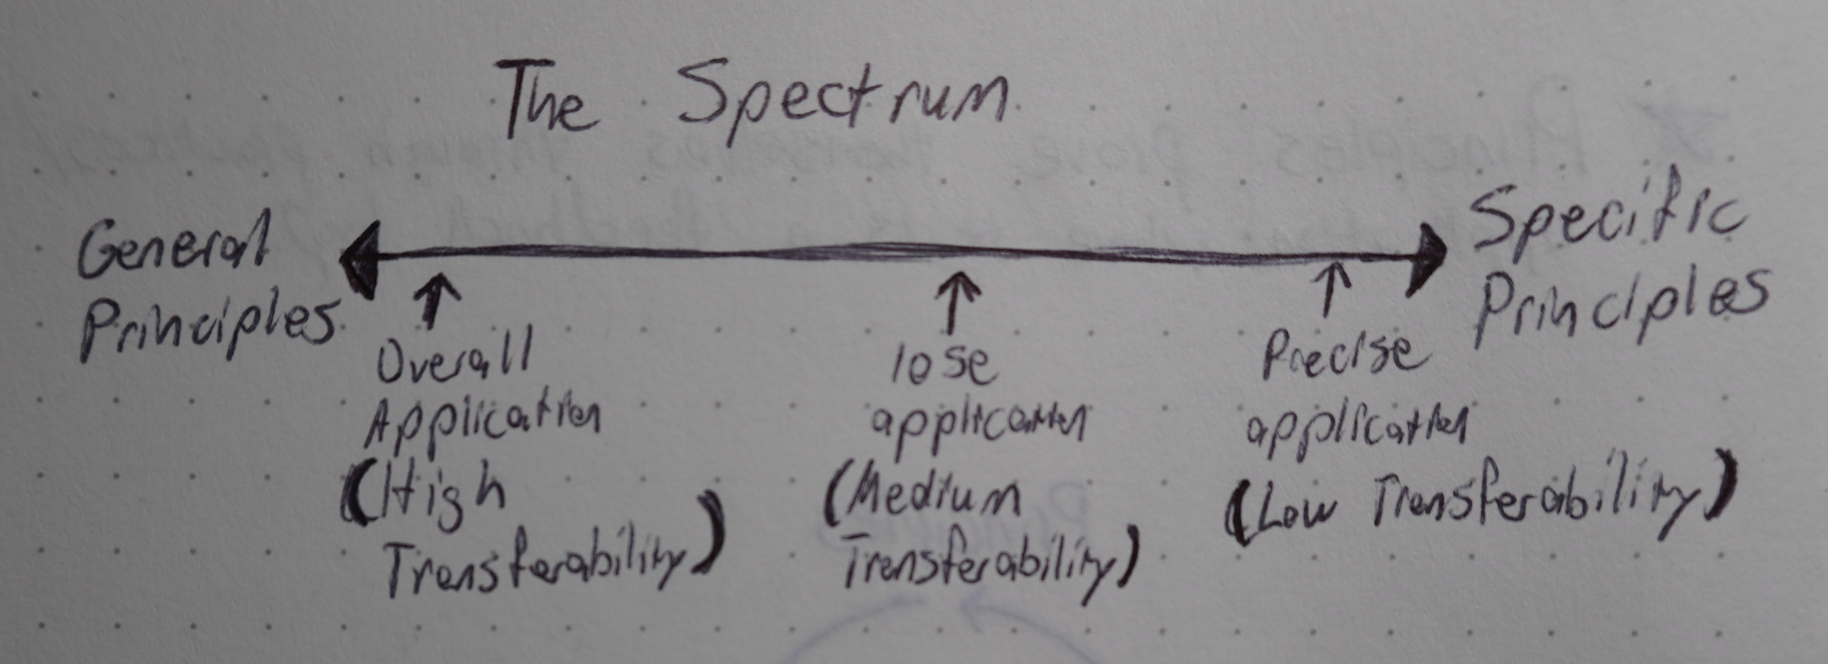 The Spectrum
General
Principles
Specific
Principles
Overall
Application
(High
Transferability)
lose
application
(Medium
Transferability)
Precise
application
(Low Transferability)